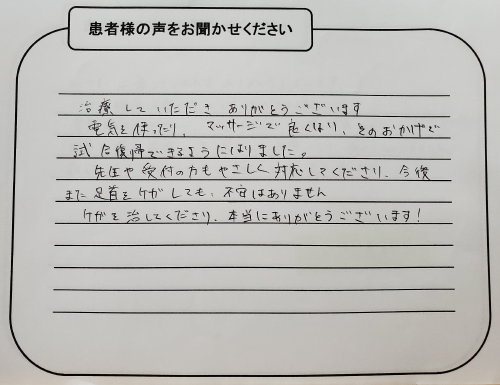 患者様の声をお聞かせください
治療していただき ありがとうございます
電気を使ったり、マッサージで良くなり、そのおかげで
試合復帰できるようになりました。
先生や受付の方もやさしく対応してくださり、今後
また足首をケガしても、不安はありません
ケガを治してくださり、本当にありがとうございます！